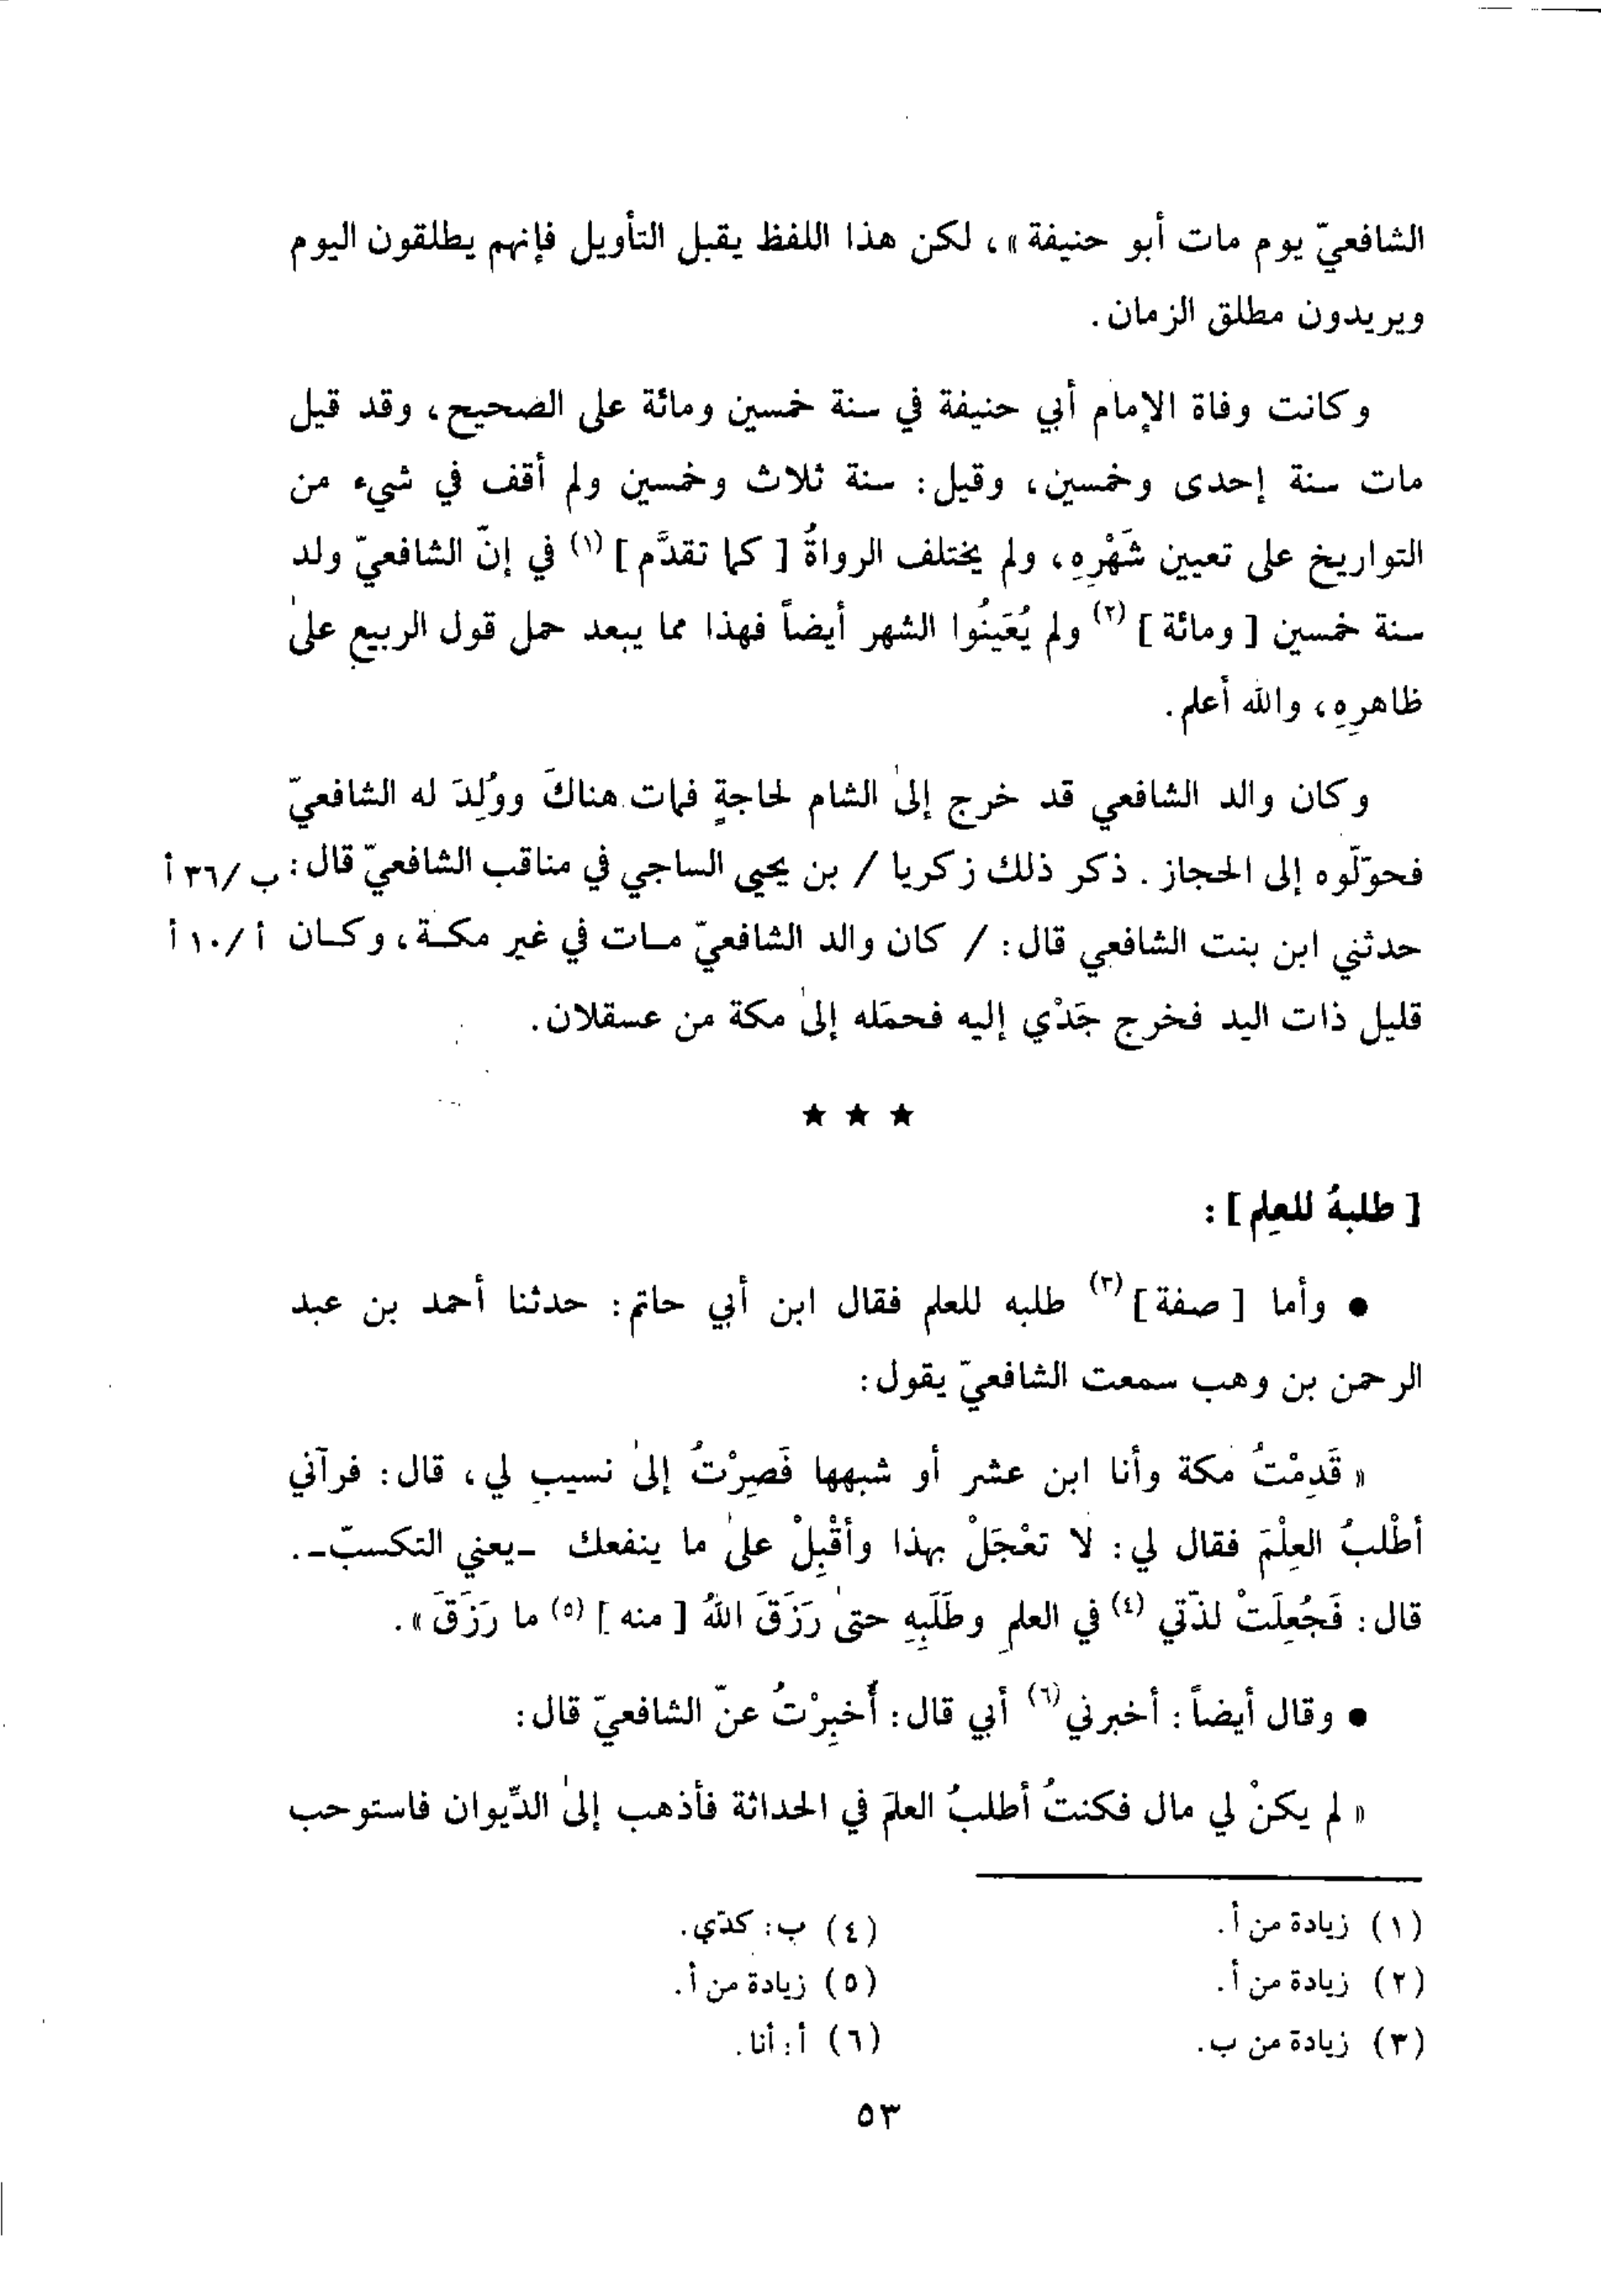 الشافعيّ يوم مات أبو حنيفة »، لكن هذا اللفظ يقبل التأويل فإنهم يطلقون اليوم
ويريدون مطلق الزمان.
وكانت وفاة الإمام أبي حنيفة في سنة خمسين ومائة على الصحيح، وقد قيل
مات سنة إحدى وخمسين، وقيل: سنة ثلاث وخمسين ولم أقف في شيء من
التواريخ على تعيين شَهْرِهِ، ولم يختلف الرواةُ [ كما تقدَّم ] (١) في إنّ الشافعيّ ولد
سنة خمسين [ ومائة ] (٢) ولم يُعَينُوا الشهر أيضاً فهذا مما يبعد حمل قول الربيع علىٰ
ظاهرِهِ، والله أعلم.
وكان والد الشافعي قد خرج إلىٰ الشام لحاجةٍ فمات هناكَ ووُلِدَ له الشافعيّ
فحوّلّوه إلى الحجاز. ذكر ذلك زكريا / بن يحيى الساجي في مناقب الشافعيّ قال: ب/٣٦ أ
حدثني ابن بنت الشافعي قال: / كان والد الشافعيّ مـات في غير مكـة، وكـان أ/١٠ أ
قليل ذات اليد فخرج جَدْي إليه فحمَله إلىٰ مكة من عسقلان.
★ ★ ★
[ طلبهُ للعِلم ]:
● وأما [ صفة ] (٣) طلبه للعلم فقال ابن أبي حاتم: حدثنا أحمد بن عبد
الرحمن بن وهب سمعت الشافعيّ يقول:
« قَدِمْتُ مكة وأنا ابن عشر أو شبهها فَصِرْتُ إلىٰ نسيبٍ لي، قال: فرآني
أطْلبُ العِلْمَ فقال لي: لا تعْجَلْ بهذا وأقْبِلْ علىٰ ما ينفعك ـ يعني التكسبّ ـ.
قال: فَجُعِلَتْ لذّتي (٤) في العلمِ وطَلَبِهِ حتىٰ رَزَقَ اللهُ [ منه ] (٥) ما رَزَقَ ».
● وقال أيضاً: أخبرني (٦) أبي قال: أُخبِرْتُ عنّ الشافعيّ قال:
« لم يكنْ لي مال فكنتُ أطلبُ العلمَ في الحداثة فأذهب إلىٰ الدِّيوان فاستوحب
(١) زيادة من أ.
(٢) زيادة من أ.
(٣) زيادة من ب.
(٤) ب: كدّي.
(٥) زيادة من أ.
(٦) أ: أنا.
٥٣